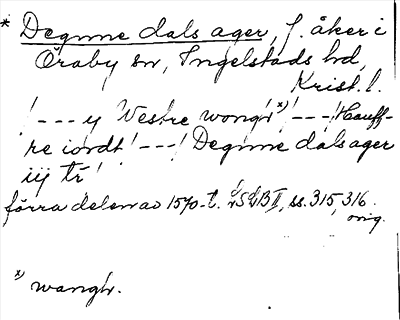 * Degnne dals ager, f. åker i
Öraby sn, Ingelstads hd,
Krist. l.
/---y Westre wongr x) /---/ Hauff-
re iordt /---/ Degnne dals ager
iij tr /
förra delen av 1570-t. SkJB II, ss. 315, 316.
orig.
x) wangr.